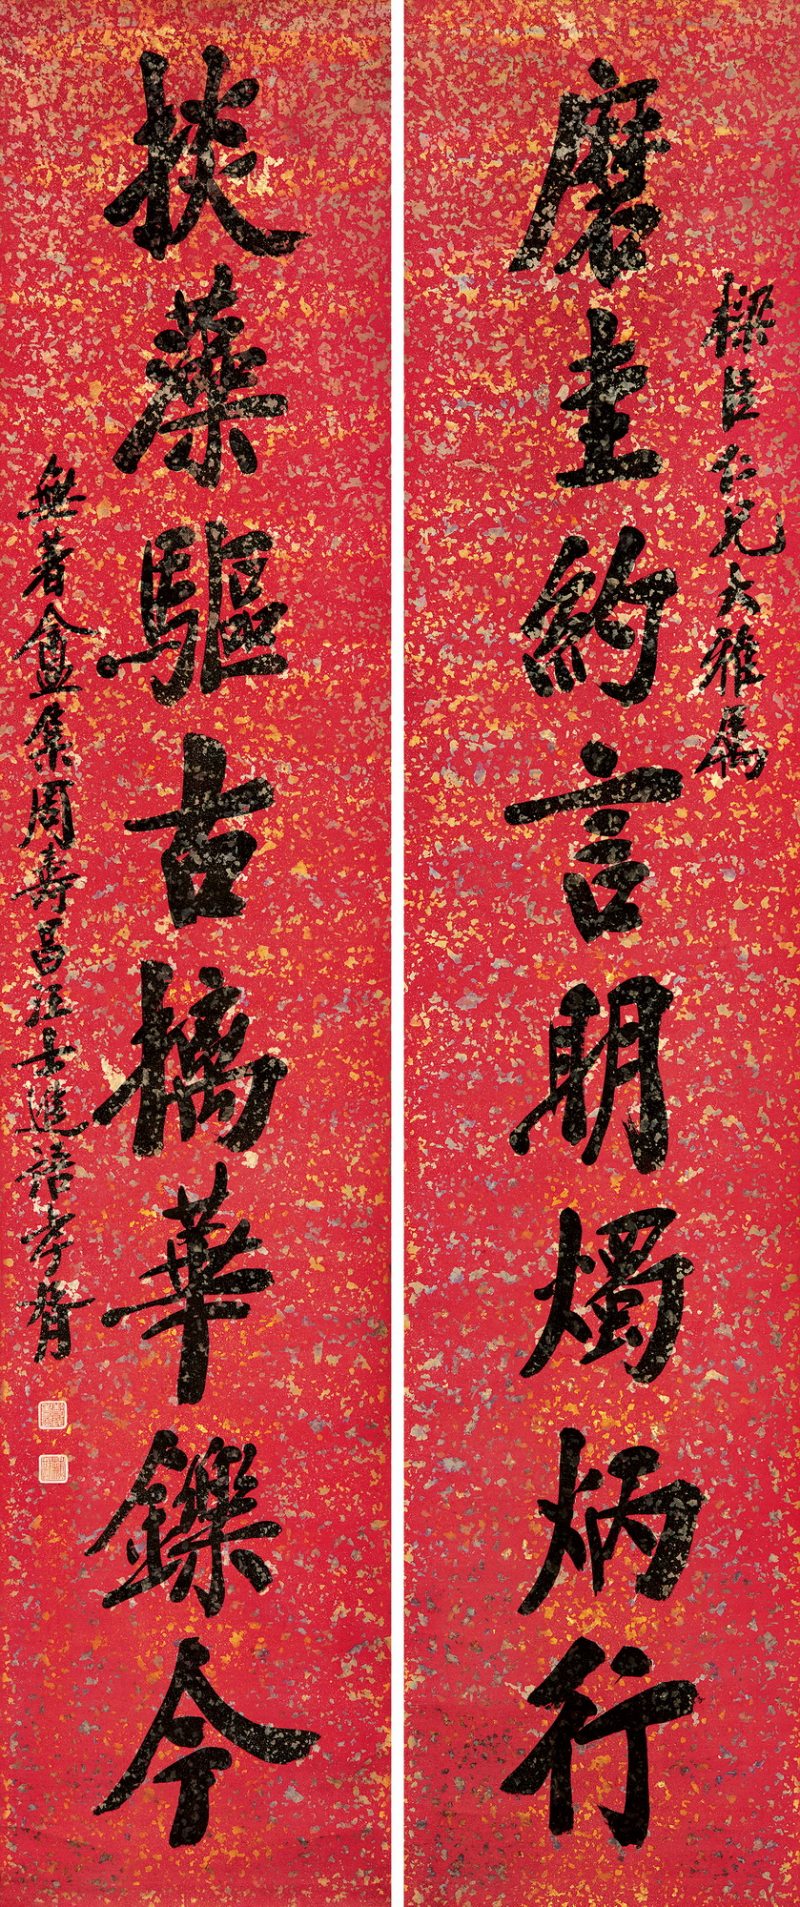 樑臣仁兄大雅屬
磨圭約言明燭炳行
掞藻驅古摛華鑠今
無著盦集周壽昌汪士進語孝胥